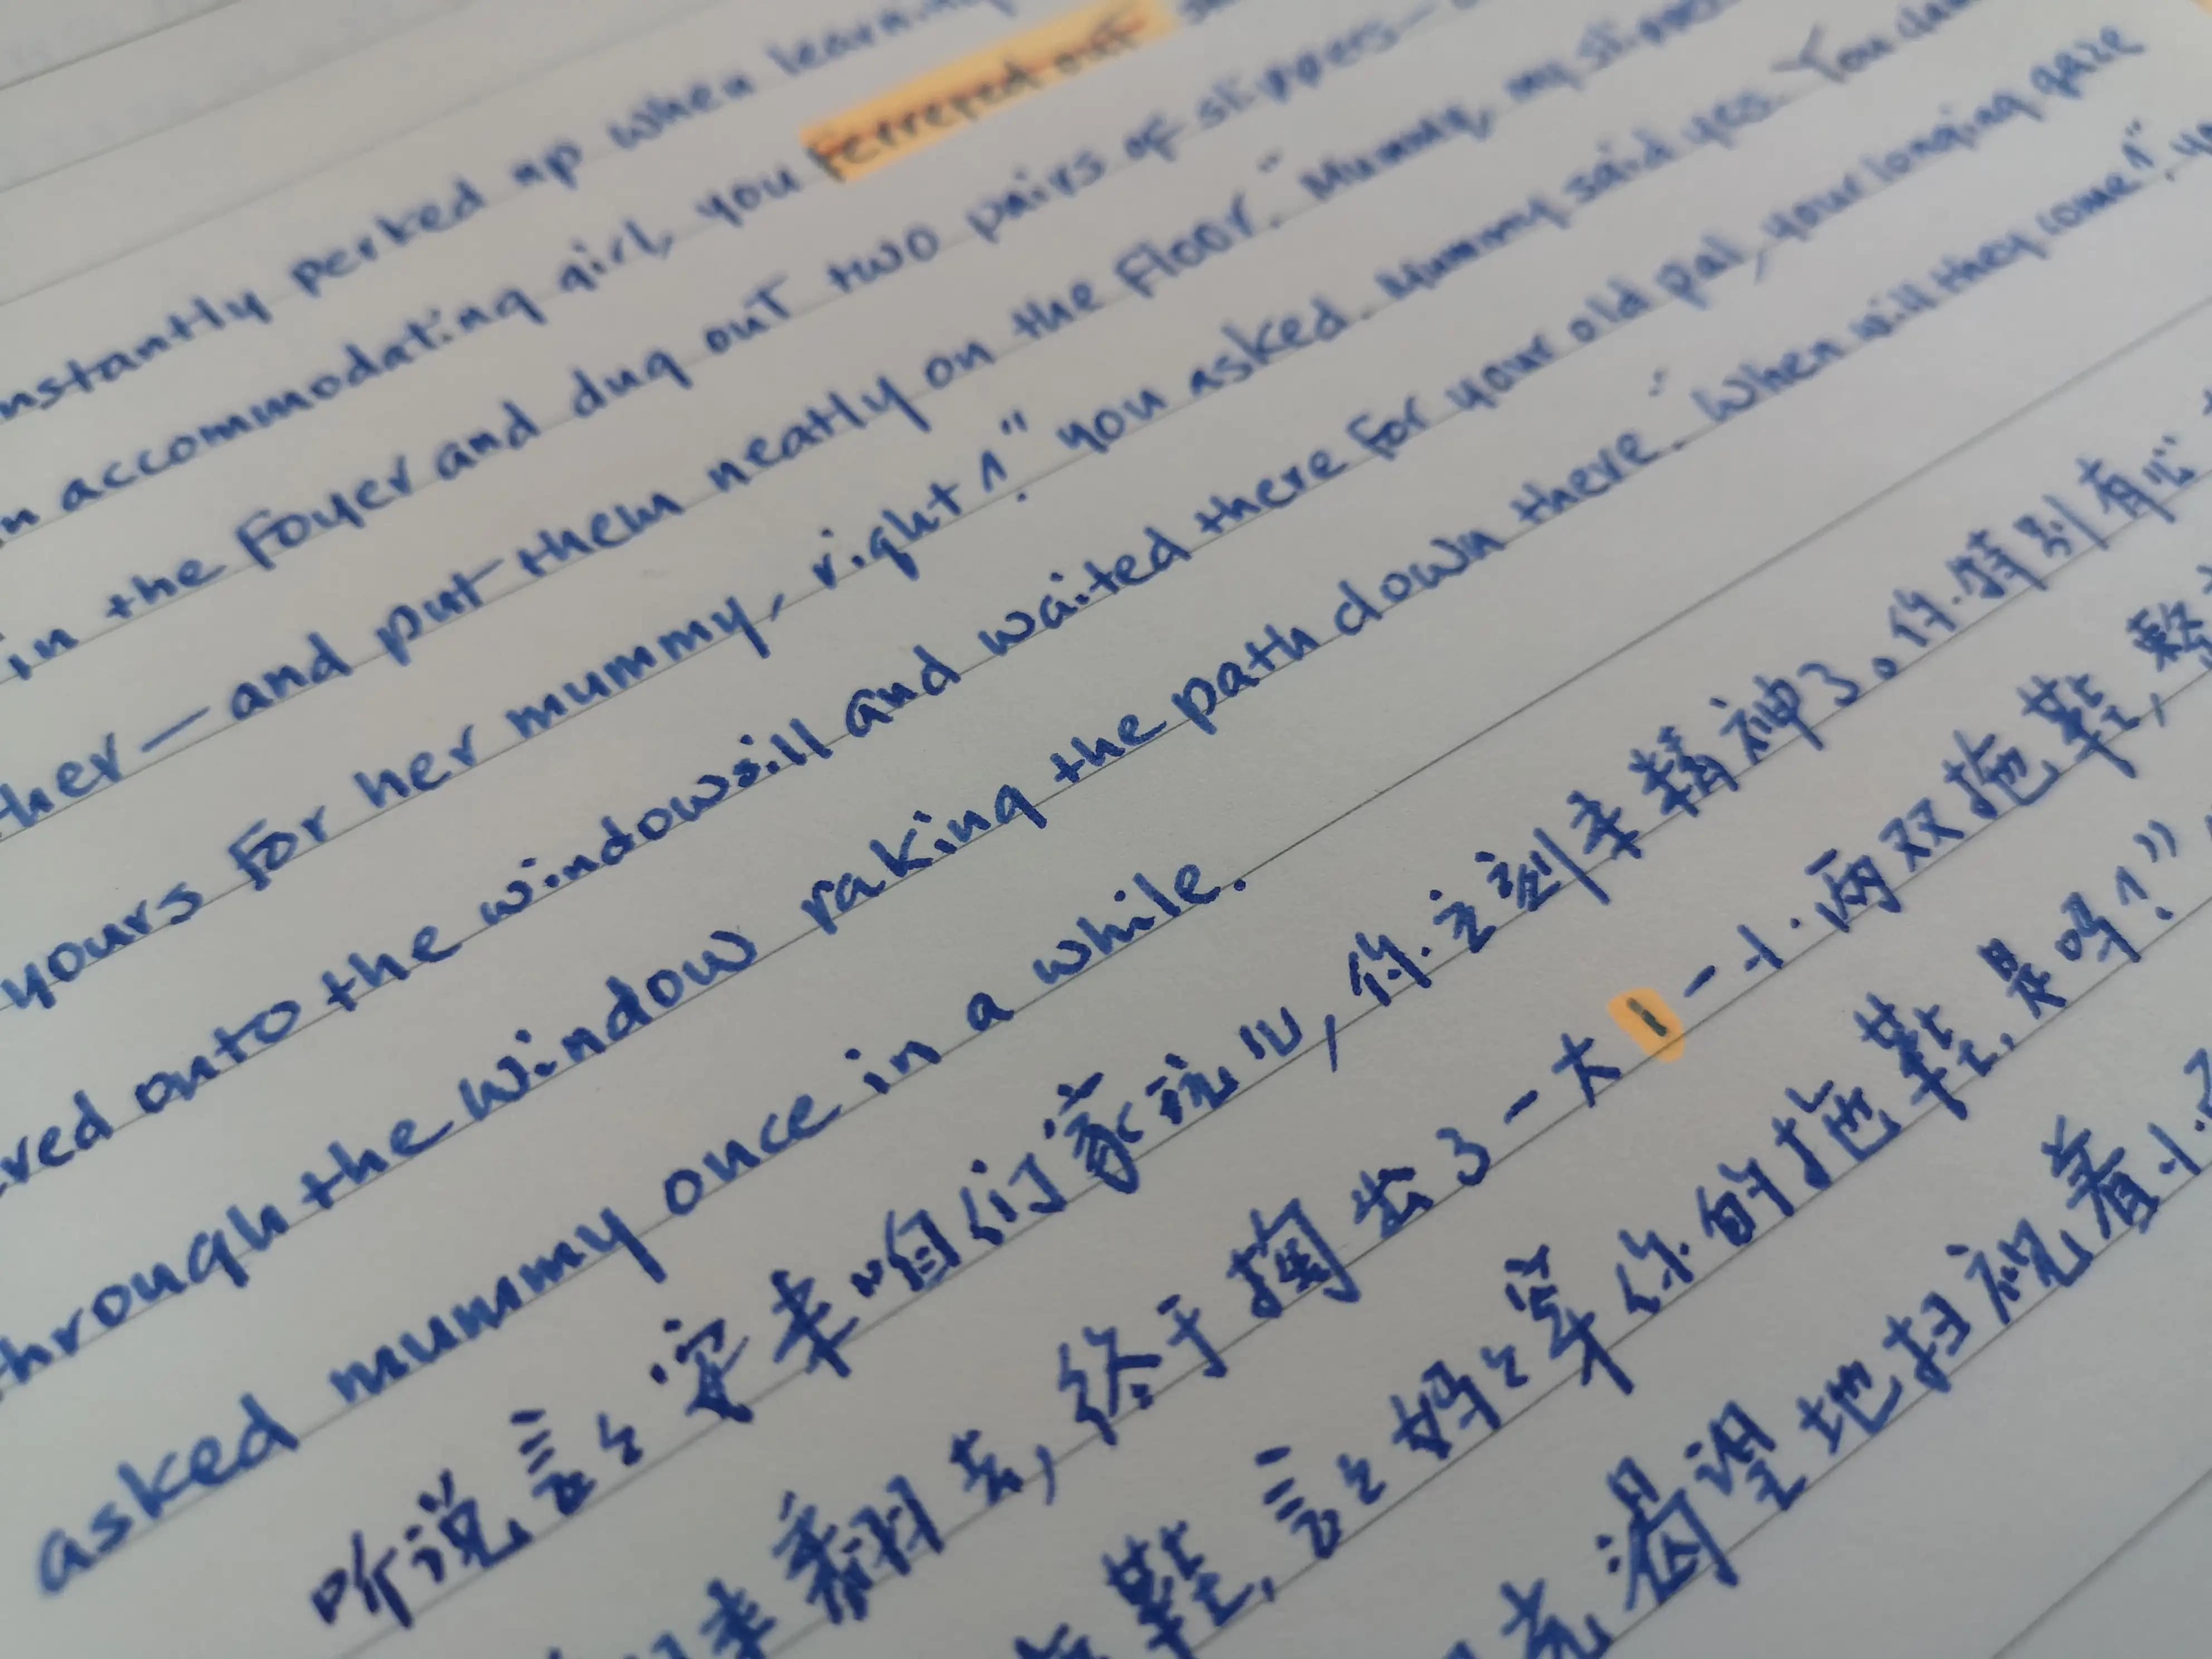 nstantly perked up when learning
n accommodating girl, you ferreted out
in the foyer and dug out two pairs of slippers—
ther—and put them neatly on the floor. "Mummy, my slippers
yours for her mummy, right?" you asked. Mummy said yes. You
ved onto the windowsill and waited there for your old pal, your longing gaze
through the window raking the path down there. "When will they come?",
asked mummy once in a while.
听说言言要来咱们家玩儿,你立刻来精神了。你特别有心
来翻去,终于掏出了一大、一小两双拖鞋,整
鞋,言言妈妈穿你的拖鞋,是吗?"
光渴望地扫视着小